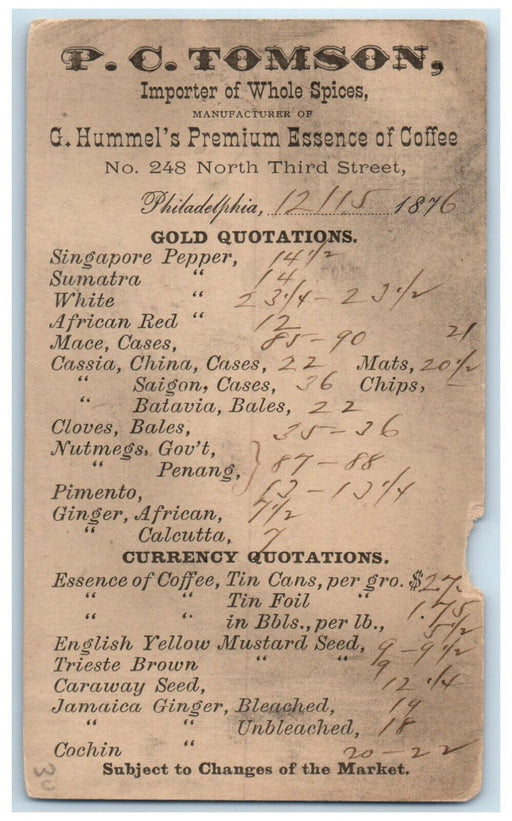 P. C. TOMSON,
Importer of Whole Spices,
MANUFACTURER OF
G. Hummel's Premium Essence of Coffee
No. 248 North Third Street,
Philadelphia, 12/15 1876
GOLD QUOTATIONS.
Singapore Pepper, 14 1/2
Sumatra " 14
White " 23 1/4 - 23 1/2
African Red " 12
Mace, Cases, 85 - 90
Cassia, China, Cases, 22 Mats, 20 1/2 21
" Saigon, Cases, 36 Chips, –
" Batavia, Bales, 22
Cloves, Bales, 35 - 36
Nutmegs, Gov't,
" Penang, } 87 - 88
Pimento, 13 - 13 1/4
Ginger, African, 7 1/2
" Calcutta, 7
CURRENCY QUOTATIONS.
Essence of Coffee, Tin Cans, per gro. $27.
" " Tin Foil " 1.75
" " in Bbls., per lb., 5 1/2
English Yellow Mustard Seed, 9 - 9 1/2
Trieste Brown " " 9
Caraway Seed, 12 1/4
Jamaica Ginger, Bleached, 19
" " Unbleached, 18
Cochin " 20 - 22
Subject to Changes of the Market.